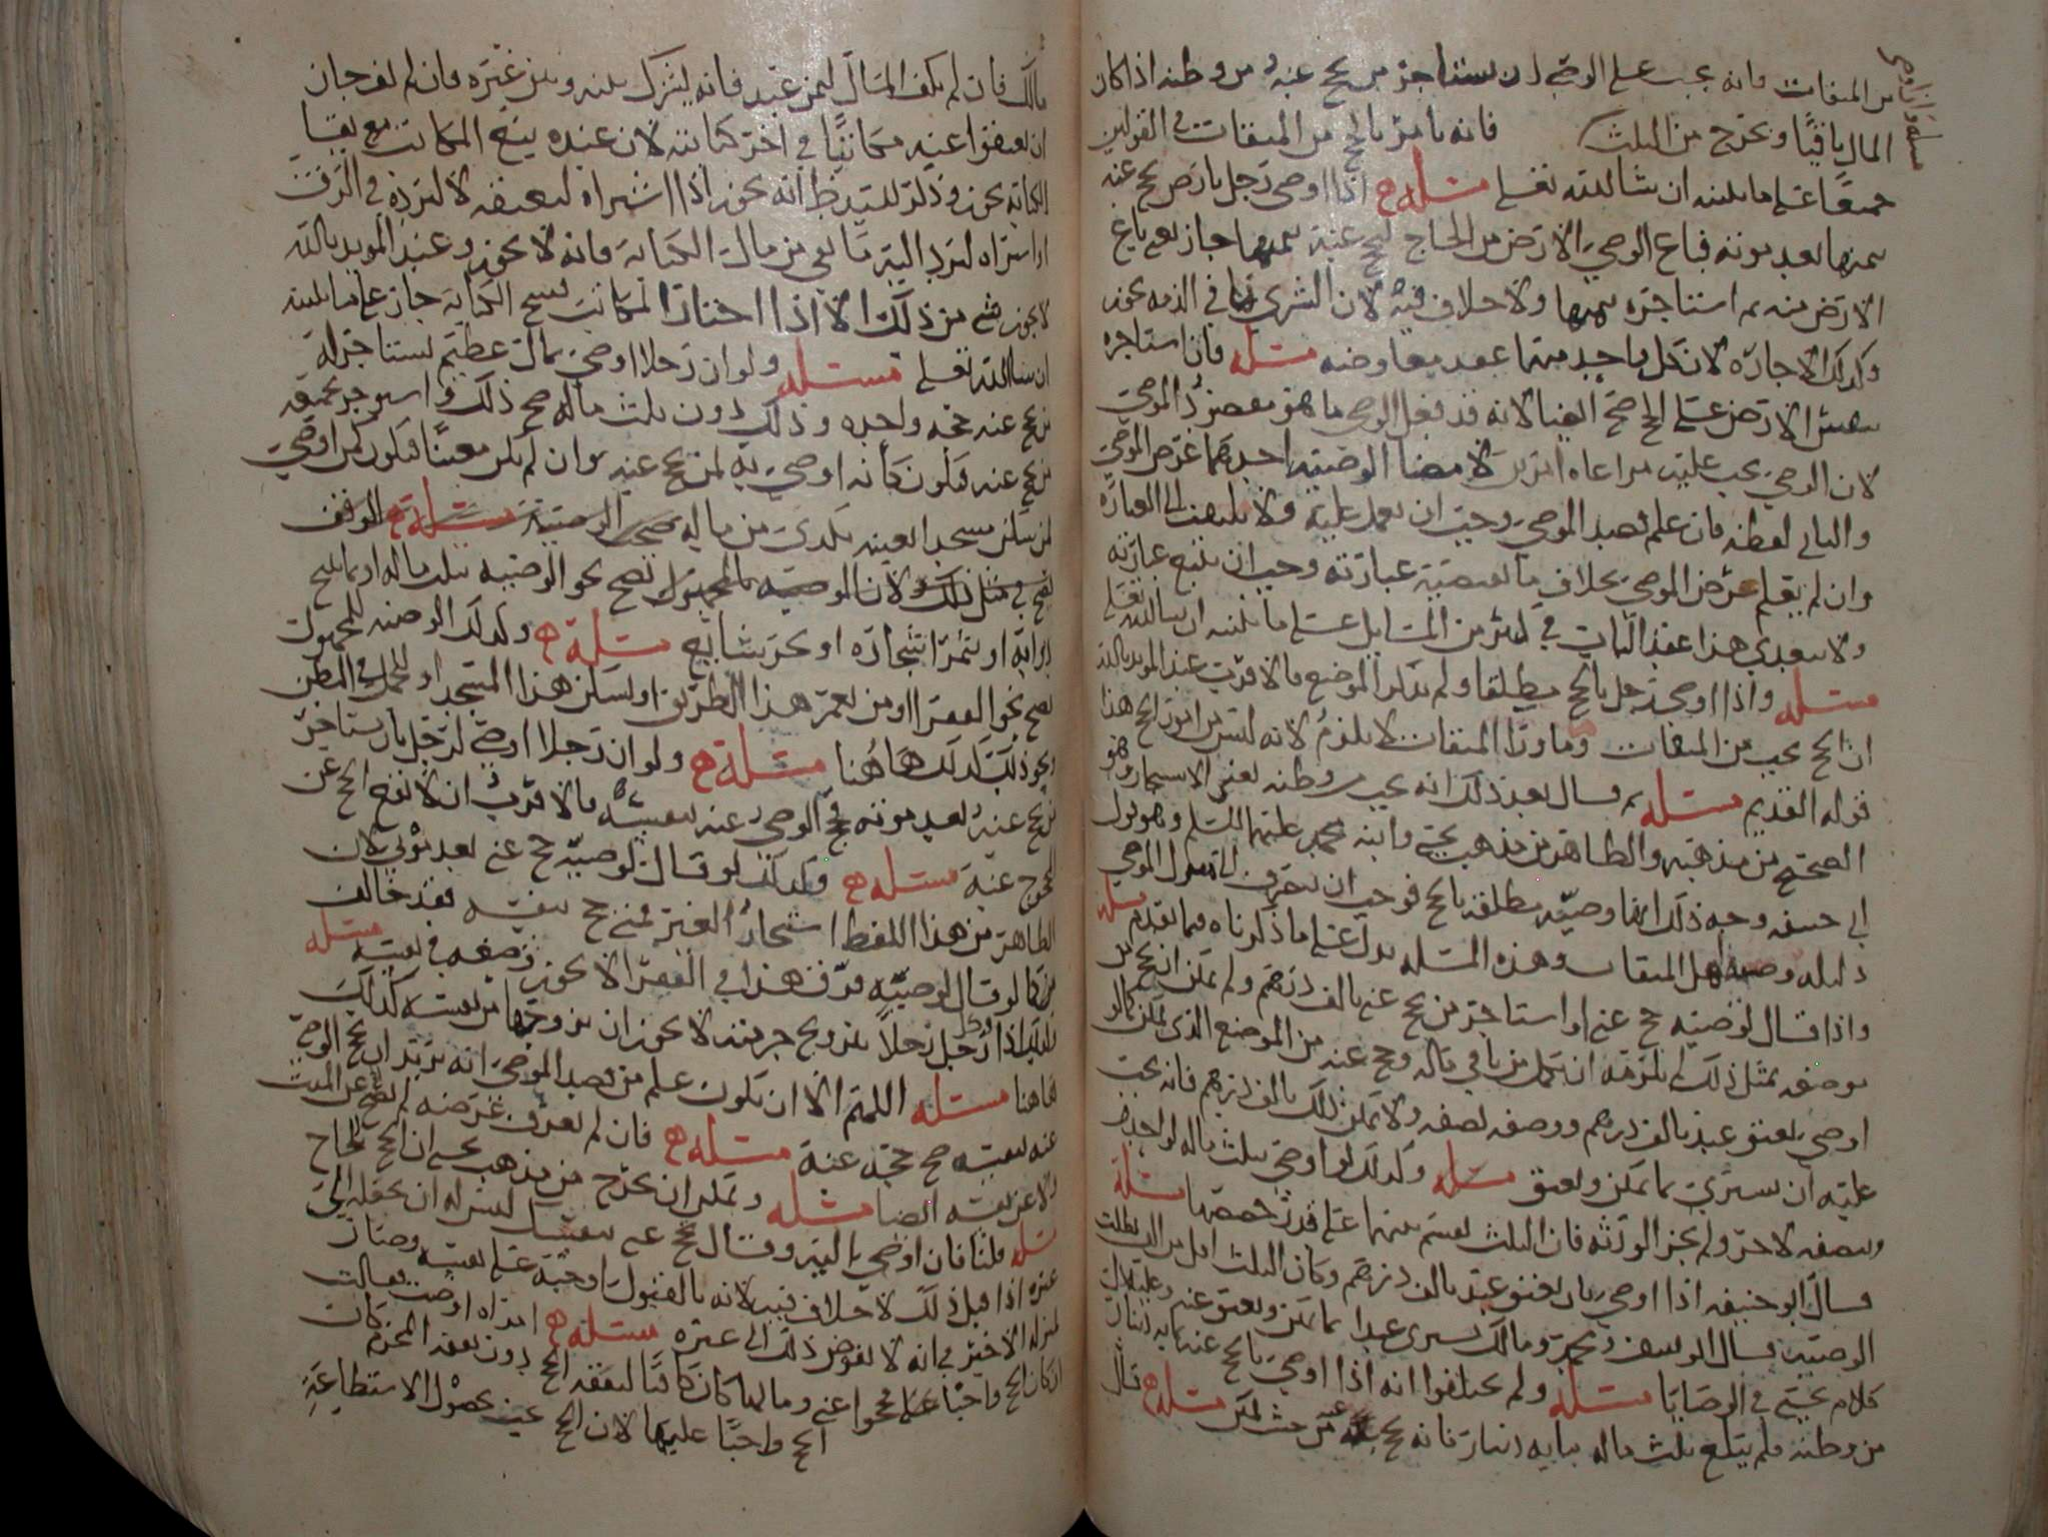 من الميقات فانه يجب على الوصي ان يستاجر من يحج عنه من وطنه اذا كان
المال باقيا ويخرج من الثلث فانه يامر بالحج من الميقات في القولين
جميعا على ما بينته ان شا الله تعلى مسئله اذا اوصى رجل بارض يحج عنه
بثمنها بعد موته فباع الوصي الارض من الحاج ليحج عنه بثمنها جاز يعني باع
الارض منه ثم استاجره بثمنها ولا خلاف فيه لان الشرى بما في الذمه يجوز
وكذلك الاجاره لان كل واحد منهما عقد معاوضه مسئله فان استاجره
بنفس الارض على الحج صح ايضا لانه قد فعل الوصي ما هو مقصود الموصي
لان الوصي يجب عليه مراعاه امرين لامضا الوصيه احدهما غرض الموصي
والثاني لفظه فان علم قصد الموصي وجب ان يعمل عليه ولا يلتفت الى العباره
وان لم يعلم غرض الموصي بخلاف ما تقتضيه عبارته وجب ان يتبع عبارته
ولا يتعدى هذا عقد الباب في كثير من المسايل على ما نبينه ان شا الله تعلى
مسئله واذا اوصى رجل بالحج مطلقا ولم يذكر الموضع فالاقرب عند المويد بالله
ان الحج يجب من الميقات وما ورا الميقات لا يلزم لانه ليس من امور الحج هذا
قوله القديم مسئله ثم قال بعد ذلك انه يجب من وطنه يعني الاستيجار وهو
الصحيح من مذهبه والظاهر من مذهب يحيى وابنه محمد عليهما السلم وهو قول
ابي حنيفه وجه ذلك انها وصيه مطلقه بالحج فوجب ان تصرف الى
دليله وصيه اهل الميقات وهذه المسئله تدل على ما ذكرناه فيما تقدم مسئله
واذا قال لوصيه حج عني او استاجر من يحج عني بالف درهم ولم يمكن ان يحج من
موضعه بمثل ذلك لم يلزمه ان يكمل من باقي ماله وحج عنه من الموضع الذي يمكن كما لو
اوصى بعتق عبد بالف درهم ووصفه بصفه ولا يمكن ذلك بالف درهم فانه يجب
عليه ان يشتري بما يمكن ويعتق مسئله وكذلك لو اوصى بثلث ماله لواحد
وبنصفه لاخر ولم يجز الورثه فان الثلث يقسم بينهما على قدر حصصهما مسئله
قال ابو حنيفه اذا اوصى بان يعتق عبد بالف درهم وكان الثلث اقل من الف بطلت
الوصيه وقال ابو يوسف ومحمد ومالك يشترى عبدا بما يمكن ويعتق عنه وعليه يدل
كلام يحيى في الوصايا مسئله ولم يختلفوا انه اذا اوصى بالحج عنه بمايه دينار
من وطنه فلم يبلغ ثلث ماله مايه دينار فانه يحج عنه من حيث يمكن مسئله قال
مالك فان لم يكف المال لثمن عبد فانه يشترك بينه وبين غيره فان لم يف جاز
ان يعتقوا عنه مكاتبا في اخر كتابته لان عنده بيع المكاتب مع بقا
الكتابه يجوز وذكر السيد ط انه يجوز اذا اشتراه ليعتقه لا ليرده في الرق
او اشتراه ليرد اليه ما بقي من مال الكتابه فانه لا يجوز وعند المويد بالله
لا يجوز شي من ذلك الا اذا اختار المكاتب فسخ الكتابه جاز على ما بينته
ان شا الله تعلى مسئله ولو ان رجلا اوصى بمال عظيم يستاجر له
من يحج عنه حجه واحده وذلك دون ثلث ماله صح ذلك واستوجر بجميعه
من يحج عنه فيكون كانه اوصى به لمن يحج عنه وان لم يكن معينا فيكون كمن اوصى
لمن سكن مسجدا بعينه بكذى من ماله صحت الوصيه مسئله الوقف
يصح في مثل ذلك لان الوصيه بالمجهول تصح نحو الوصيه بثلث ماله او بما
دوابه او بثمر اشجاره او بجز شايع مسئله وكذلك الوصيه للمجهول
تصح نحو الفقرا او من يعمر هذا الطريق او يسكن هذا المسجد او للحمل في البطن
ونحو ذلك كذلك هاهنا مسئله ولو ان رجلا اوصى لرجل بان يستاجر
من يحج عنه بعد موته فحج الوصي عنه بنفسه فالاقرب ان لا يقع الحج عن
المحجوج عنه مسئله وكذلك لو قال لوصيه حج عني بعد موتي لان
الظاهر من هذا اللفظ استيجار الغير فمتى حج بنفسه فقد خالف
كما لو قال لوصيه فرق هذا في الفقرا لا يجوز ان يضعه في نفسه مسئله
وكذلك اذا وكل رجلا بتزويج حرمته لا يجوز ان يزوجها من نفسه كذلك
هاهنا مسئله اللهم الا ان يكون علم من قصد الموصي انه يريد ان يحج الوصي
عنه بنفسه صح حجه عنه مسئله فان لم يعرف غرضه لم يقع عن الميت
ولا عن نفسه ايضا مسئله ويمكن ان يخرج من مذهب يحيى ان الحج للحاج
مسئله قلنا فان اوصى اليه وقال حج عني بنفسك ليس له ان يجعله الى
غيره اذا قبل ذلك لا خلاف فيه لانه بالقبول اوجبه على نفسه وصار
بمنزله الاجير في انه لا يفوض ذلك الى غيره مسئله امراه اوصت فقالت
ان كان الحج واجبا علي فحجوا عني ومالها كان كافيا لنفقه الحج دون نفقه المحرم كان
الحج واجبا عليها لان الحج يجب بحصول الاستطاعه